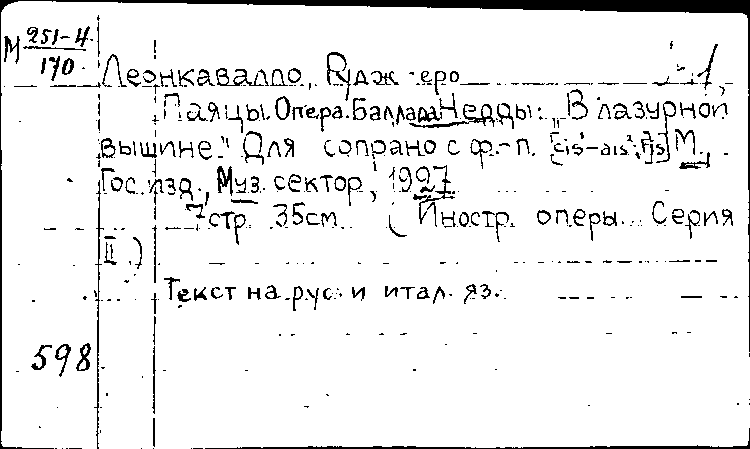 М 251-4
170
Леонкавалло, Рудж-еро
Паяцы. Опера. Баллада Недды: „В лазурной
вышине." Для сопрано с ф.-п. [cis¹-ais², fis] М.,
Гос. изд., Муз. сектор, 1927.
7 стр. 35см. (Иностр. оперы. Серия
II.)
Текст на рус. и итал. яз.
598